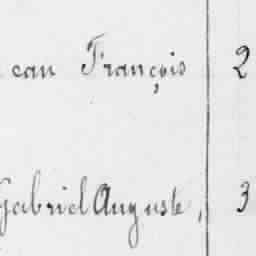 ean François 2
Gabriel Auguste, 3